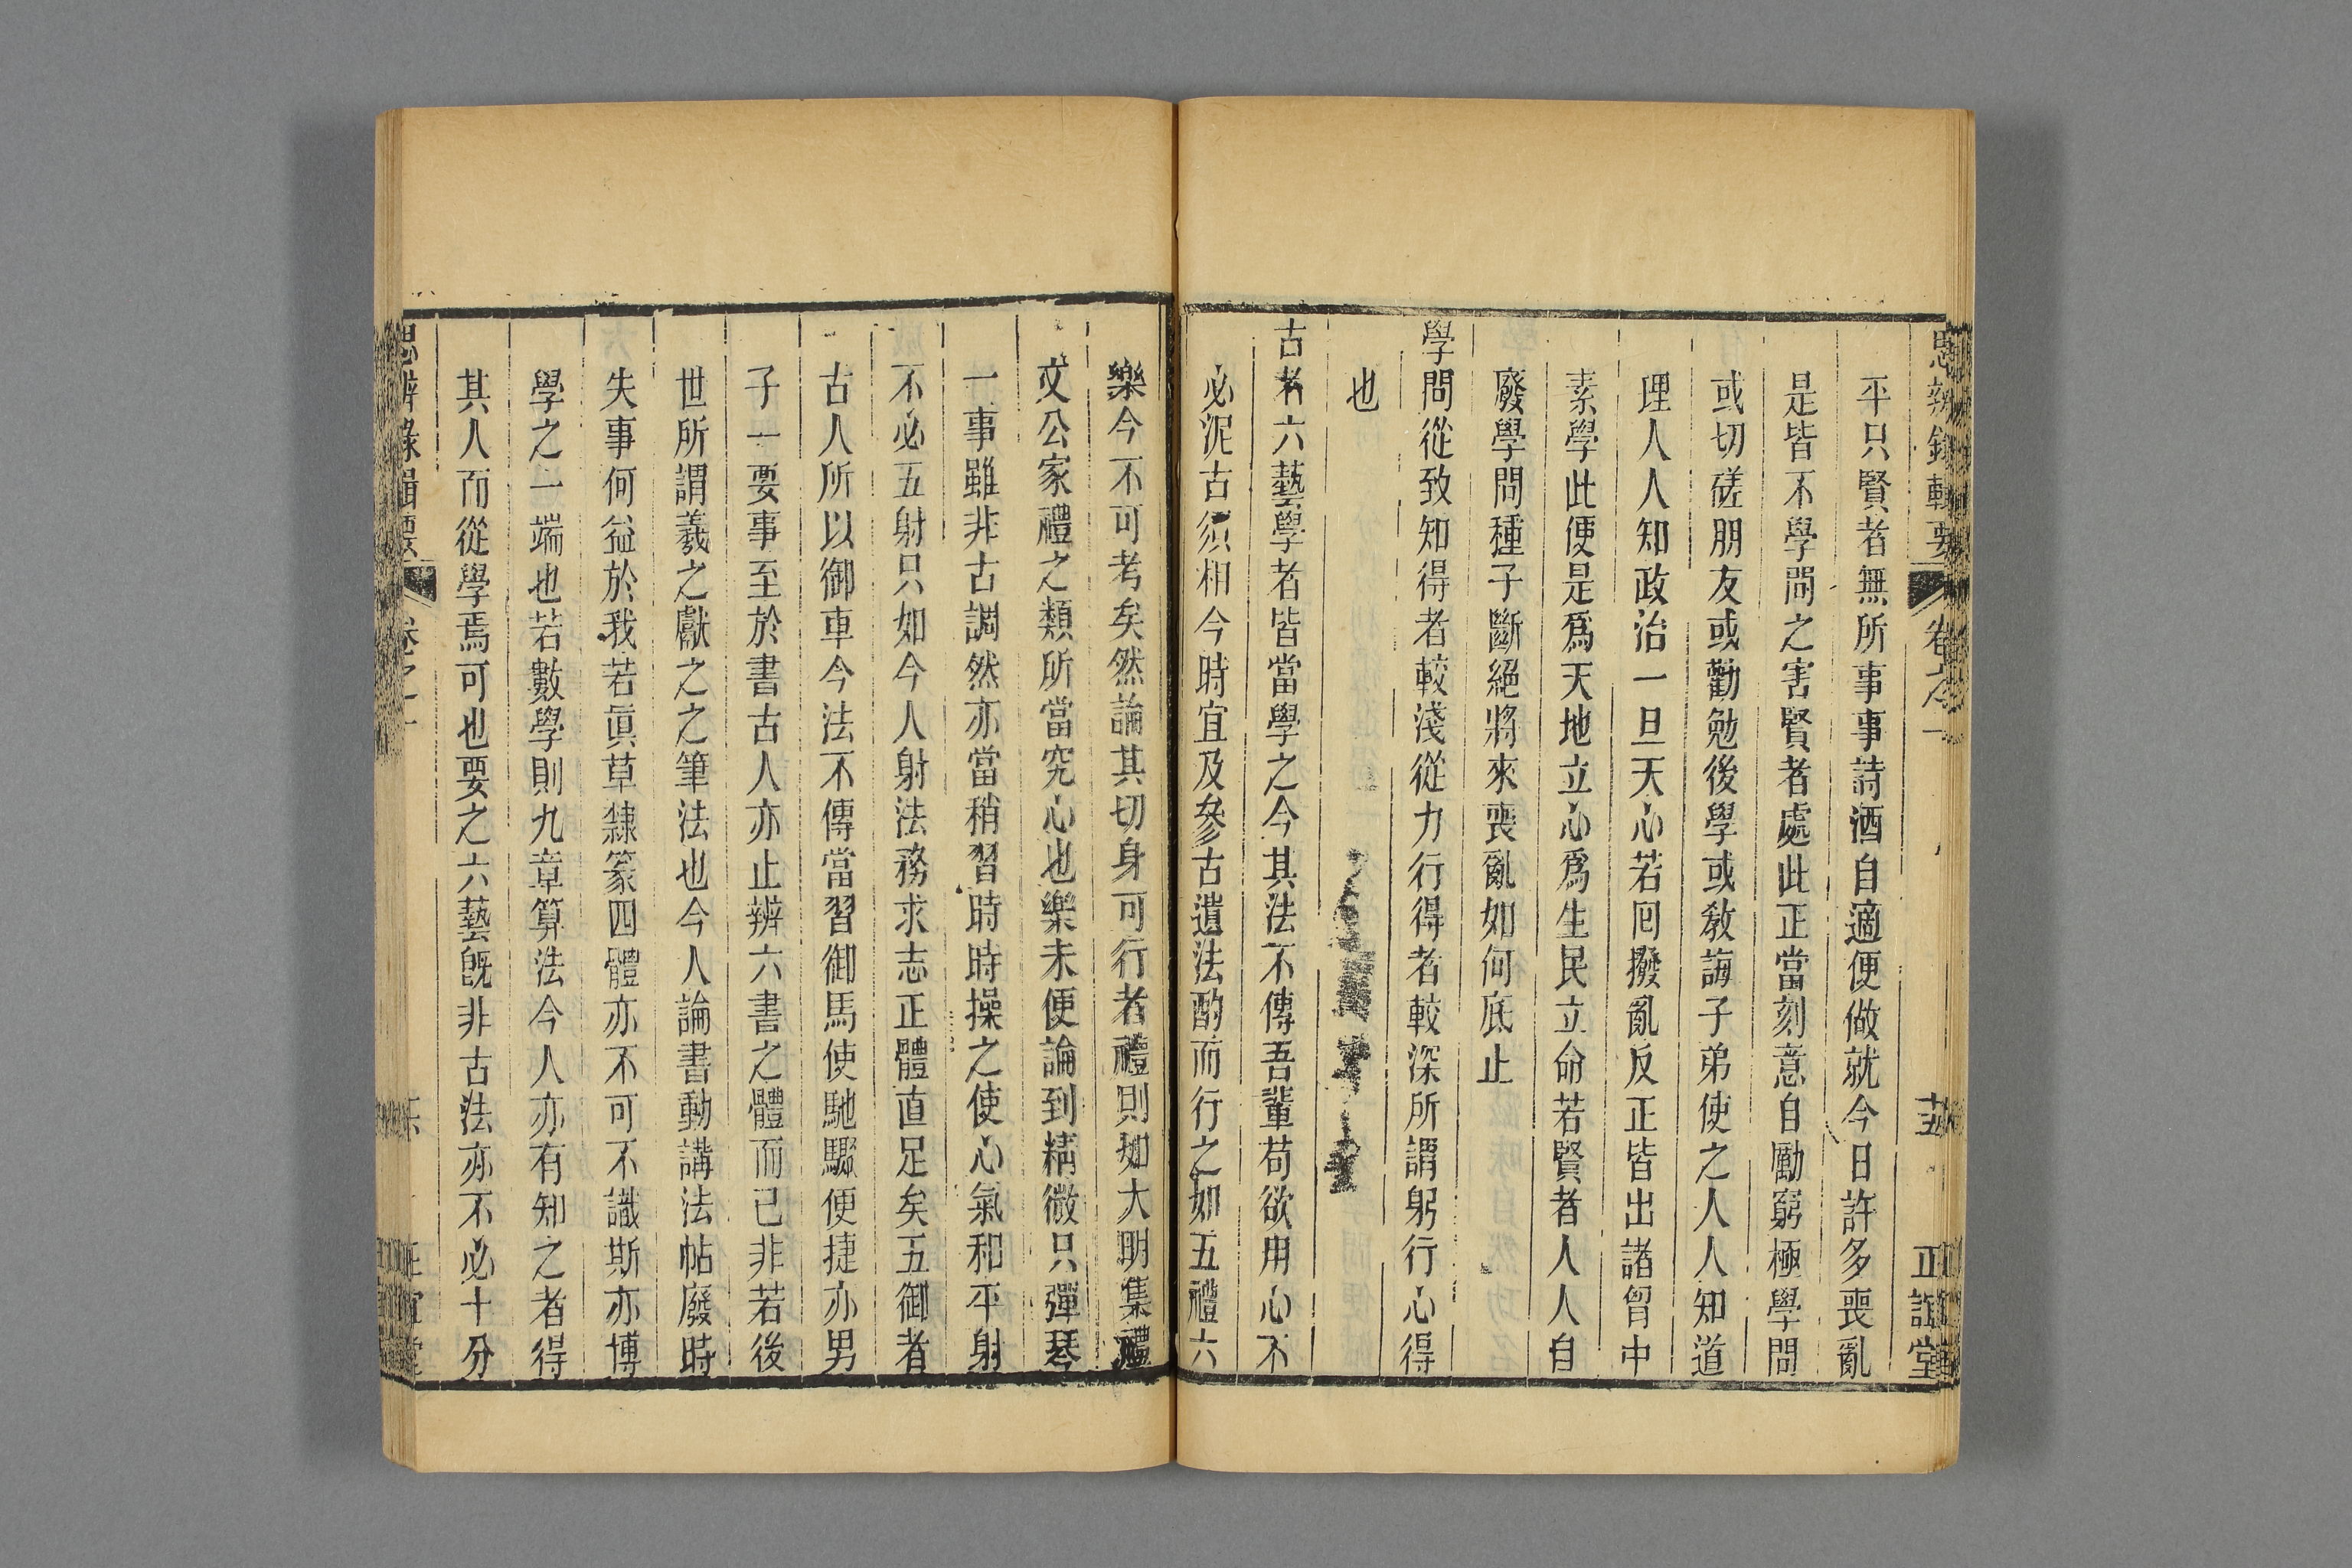 思辨錄輯要 卷之一 正誼堂
平只賢者無所事事詩酒自適便做就今日許多喪亂
是皆不學問之害賢者處此正當刻意自勵窮極學問
或切磋朋友或勸勉後學或教誨子弟使之人人知道
理人人知政治一旦天心若囘撥亂反正皆出諸胷中
素學此便是爲天地立心爲生民立命若賢者人人自
廢學問種子斷絕將來喪亂如何底止
學問從致知得者較淺從力行得者較深所謂躬行心得
也
古者六藝學者皆當學之今其法不傳吾輩苟欲用心不
必泥古須相今時宜及參古遺法酌而行之如五禮六
樂今不可考矣然論其切身可行者禮則如大明集禮
文公家禮之類所當究心也樂未便論到精微只彈琴
一事雖非古調然亦當稍習時時操之使心氣和平射
不必五射只如今人射法務求志正體直足矣五御者
古人所以御車今法不傳當習御馬使馳驟便捷亦男
子一要事至於書古人亦止辨六書之體而已非若後
世所謂羲之獻之之筆法也今人論書動講法帖廢時
失事何益於我若眞草隸篆四體亦不可不識斯亦博
學之一端也若數學則九章算法今人亦有知之者得
其人而從學焉可也要之六藝旣非古法亦不必十分
思辨錄輯要 卷之一